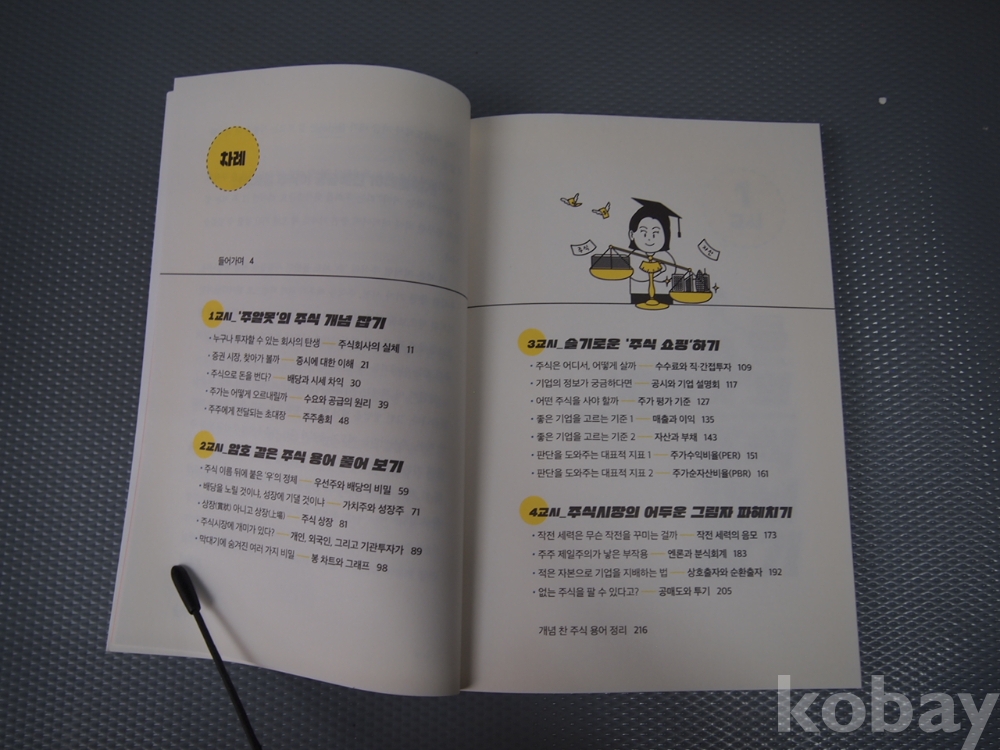 차례
들어가며 4
1교시_'주알못'의 주식 개념 잡기
• 누구나 투자할 수 있는 회사의 탄생 주식회사의 실체 11
• 증권 시장, 찾아가 볼까 증시에 대한 이해 21
• 주식으로 돈을 번다? 배당과 시세 차익 30
• 주가는 어떻게 오르내릴까 수요와 공급의 원리 39
• 주주에게 전달되는 초대장 주주총회 48
2교시_암호 같은 주식 용어 풀어 보기
• 주식 이름 뒤에 붙은 '우'의 정체 우선주와 배당의 비밀 59
• 배당을 노릴 것이냐, 성장에 기댈 것이냐 가치주와 성장주 71
• 상장(賞狀) 아니고 상장(上場) 주식 상장 81
• 주식시장에 개미가 있다? 개인, 외국인, 그리고 기관투자가 89
• 막대기에 숨겨진 여러 가지 비밀 봉 차트와 그래프 98
주식
자산
3교시_슬기로운 '주식 쇼핑'하기
• 주식은 어디서, 어떻게 살까 수수료와 직·간접투자 109
• 기업의 정보가 궁금하다면 공시와 기업 설명회 117
• 어떤 주식을 사야 할까 주가 평가 기준 127
• 좋은 기업을 고르는 기준 1 매출과 이익 135
• 좋은 기업을 고르는 기준 2 자산과 부채 143
• 판단을 도와주는 대표적 지표 1 주가수익비율(PER) 151
• 판단을 도와주는 대표적 지표 2 주가순자산비율(PBR) 161
4교시_주식시장의 어두운 그림자 파헤치기
• 작전 세력은 무슨 작전을 꾸미는 걸까 작전 세력의 음모 173
• 주주 제일주의가 낳은 부작용 엔론과 분식회계 183
• 적은 자본으로 기업을 지배하는 법 상호출자와 순환출자 192
• 없는 주식을 팔 수 있다고? 공매도와 투기 205
개념 찬 주식 용어 정리 216
kobay